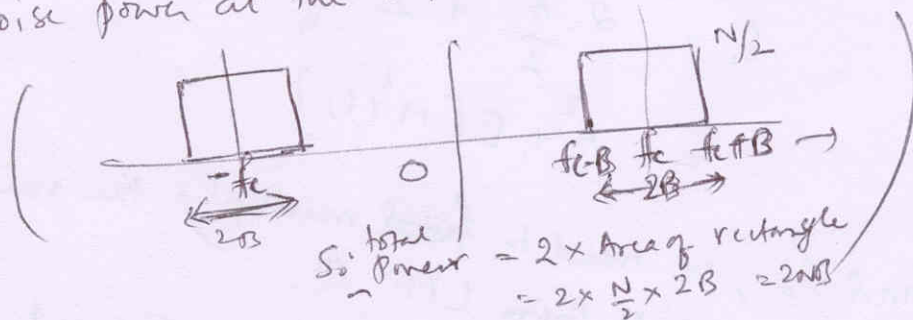 oise power at the
N/2
-fc
0
fc-B fc fc+B
2B
2B
So total Power = 2 x Area of rectangle
= 2 x N/2 x 2B = 2NB